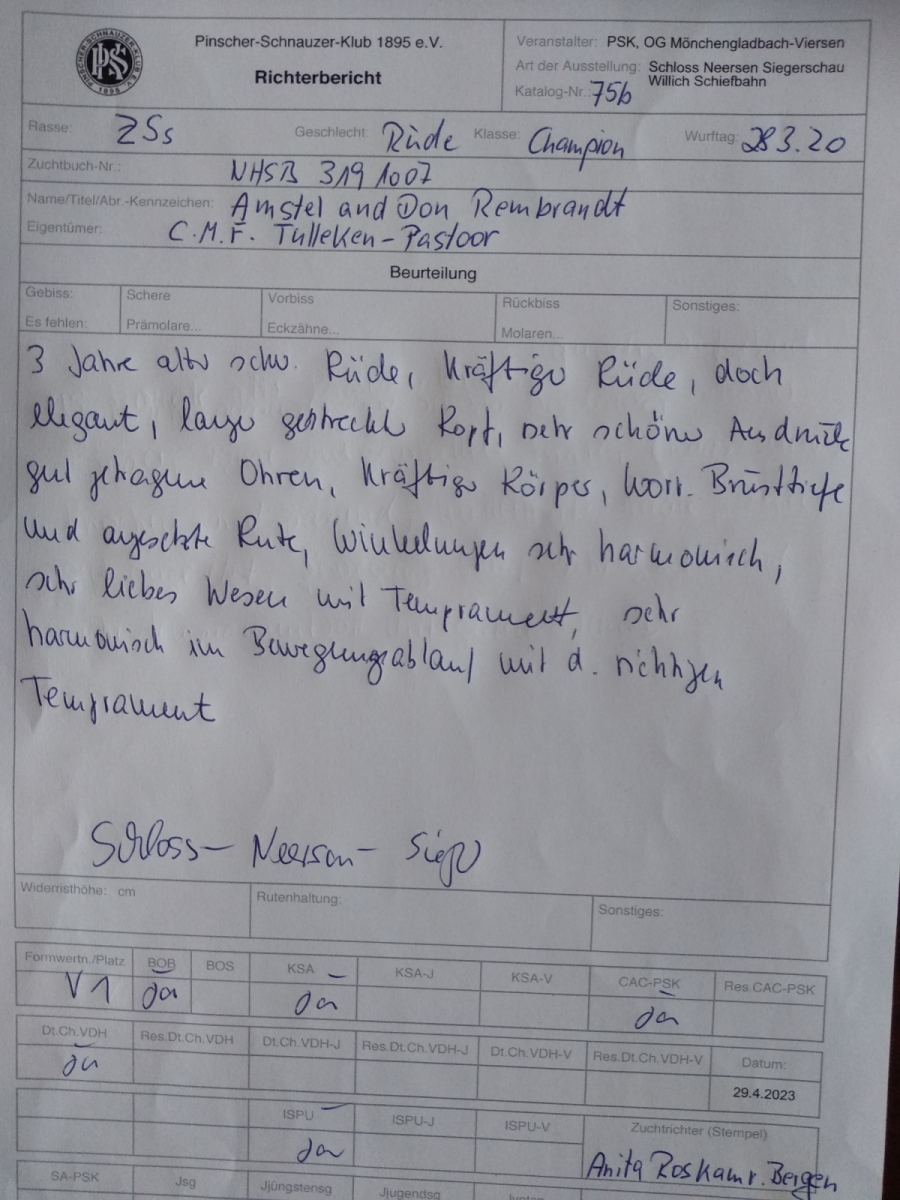 Pinscher-Schnauzer-Klub 1895 e.V.
Richterbericht
PINSCHER-SCHNAUZER-KLUB E.V. 1895
PSK
Veranstalter: PSK, OG Mönchengladbach-Viersen
Art der Ausstellung: Schloss Neersen Siegerschau
Willich Schiefbahn
Katalog-Nr.: 756
Rasse: ZSs Geschlecht: Rüde Klasse: Champion Wurftag: 28.3.20
Zuchtbuch-Nr.: NHSB 3191007
Name/Titel/Abr.-Kennzeichen: Amstel and Don Rembrandt
Eigentümer: C.M.F. Tulleken-Pastoor
Beurteilung
Gebiss: Schere Vorbiss Rückbiss Sonstiges:
Es fehlen: Prämolare... Eckzähne... Molaren...
3 Jahre alter schw. Rüde, kräftiger Rüde, doch
elegant, lange gestreckter Kopf, sehr schöner Ausdruck
gut getragene Ohren, kräftiger Körper, korr. Brusttiefe
und angesetzte Rute, Winkelungen sehr harmonisch,
sehr liebes Wesen mit Temprament, sehr
harmonisch im Bewegungsablauf mit d. richtigen
Temprament
Schloss- Neersen- Sieger
Widerristhöhe: cm Rutenhaltung: Sonstiges:
Formwertn./Platz BOB BOS KSA KSA-J KSA-V CAC-PSK Res.CAC-PSK
V1 Ja Ja Ja
Dt.Ch.VDH Res.Dt.Ch.VDH Dt.Ch.VDH-J Res.Dt.Ch.VDH-J Dt.Ch.VDH-V Res.Dt.Ch.VDH-V Datum:
Ja 29.4.2023
ISPU ISPU-J ISPU-V Zuchtrichter (Stempel)
Ja Anita Roskam v. Bergen
SA-PSK Jsg Jjüngstensg Jjugendsg